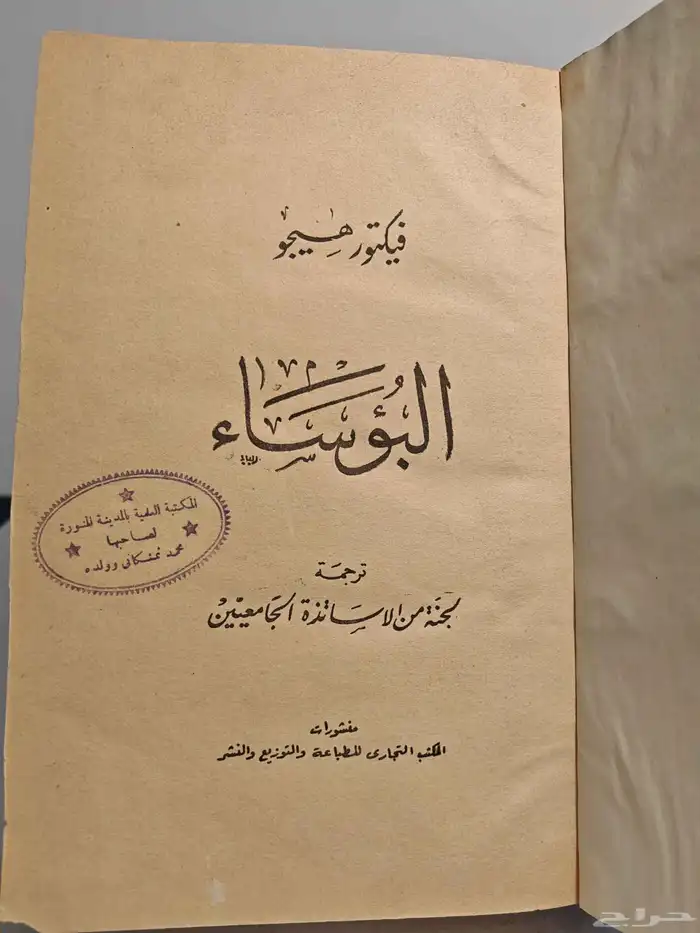 فيكتور هيجو
البؤساء
المكتبة العلمية بالمدينة المنورة
لصاحبها
محمد نمنكاني وولده
ترجمة
لجنة من الاساتذة الجامعيين
منشورات
المكتب التجاري للطباعة والتوزيع والنشر
حراج